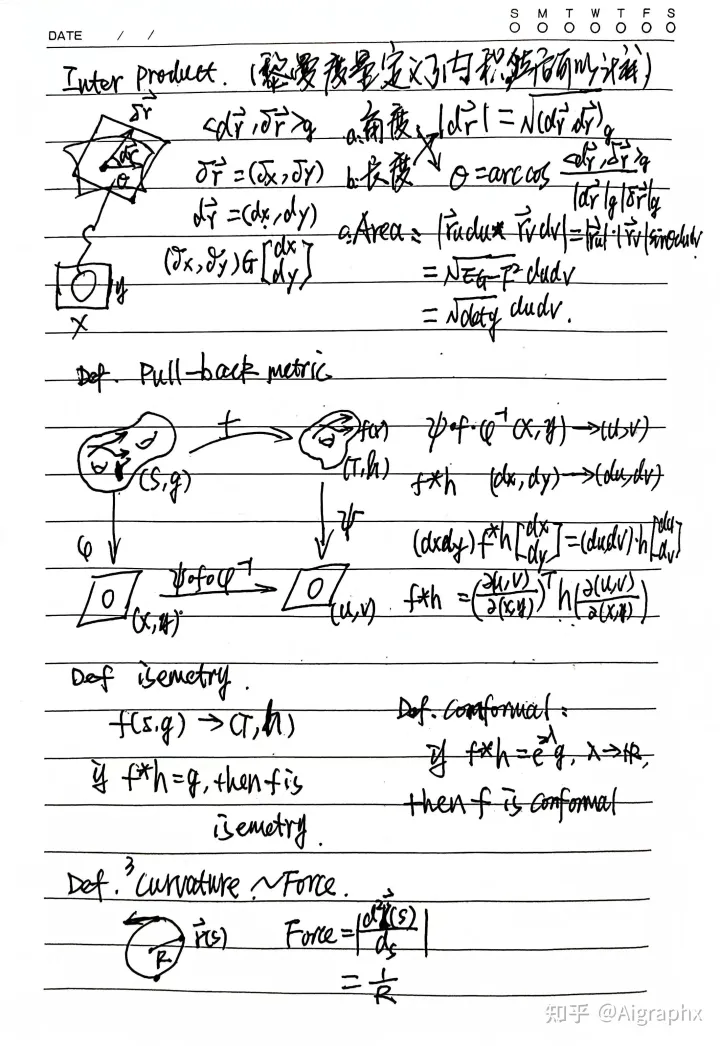 S M T W T F S
DATE / /
Inter product. (黎曼度量定义了内积结后可以计算)
δr⃗
dr⃗
θ
y
x
<dr⃗, δr⃗>g
δr⃗ = (δx, δy)
dr⃗ = (dx, dy)
(δx, δy) G [dx dy]
a. 角度: |dr⃗| = √(dr⃗, dr⃗)g
b. 长度 θ = arccos <dr⃗, δr⃗>g / |dr⃗|g |δr⃗|g
a. Area: |r⃗u du * r⃗v dv| = |r⃗u|·|r⃗v| sinθ dudv
= √EG-F² dudv
= √detg dudv.
Def. Pull-back metric
f
(S, g)
(T, h)
φ
ψ
ψ∘f∘φ⁻¹
(x, y)
(u, v)
ψ∘f∘φ⁻¹ (x, y) → (u, v)
f*h (dx, dy) → (du, dv)
(dx dy) f*h [dx dy] = (du dv) · h [du dv]
f*h = (∂(u,v)/∂(x,y))ᵀ h (∂(u,v)/∂(x,y))
Def isemetry.
f(S, g) → (T, h)
if f*h = g, then f is
isemetry.
Def. conformal:
if f*h = e^2λ g, λ → R,
then f is conformal
Def.³ Curvature ~ Force.
R
r⃗(s)
Force = |d²r⃗(s)/ds|
= 1/R
知乎 @Aigraphx